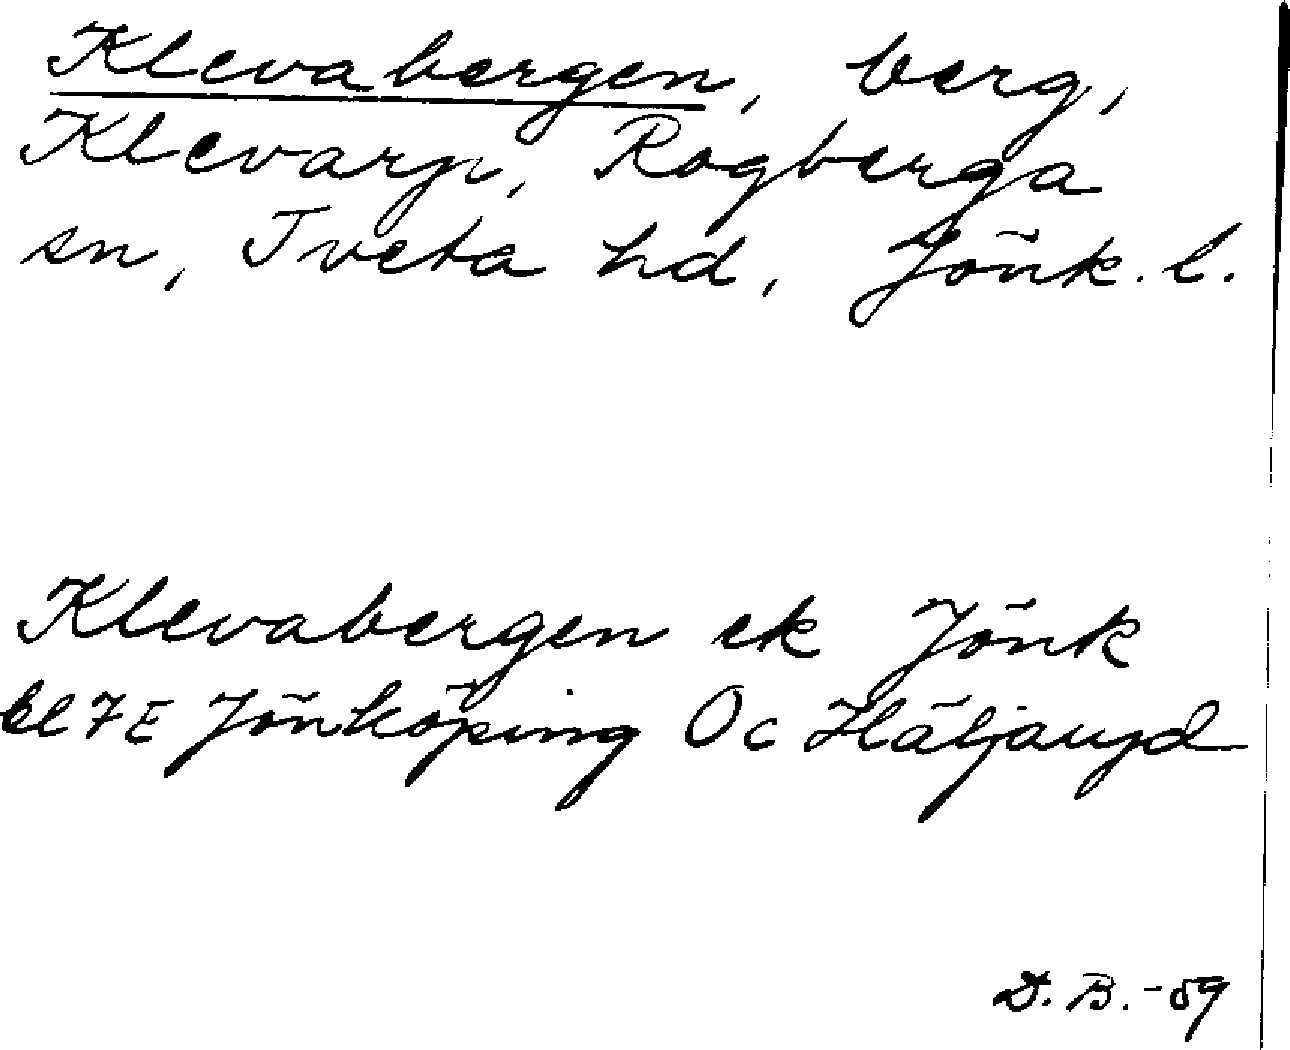 Klevabergen, berg,
Klevarp, Rogberga
sn, Tveta hd, Jönk. l.
Klevabergen ek Jönk
bl 7E Jönköping Oc Häljaryd
D. B. -59